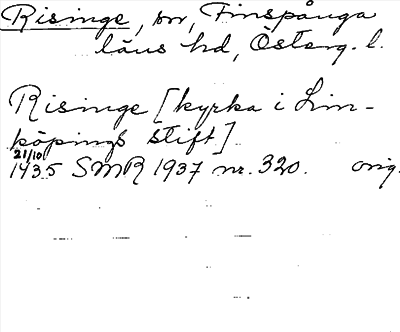 Risinge, sn, Finspånga
läns hd, Österg. l.
Risinge [kyrka i Lin-
köpings stift]
21/10
1435 SMR 1937 nr. 320. orig.